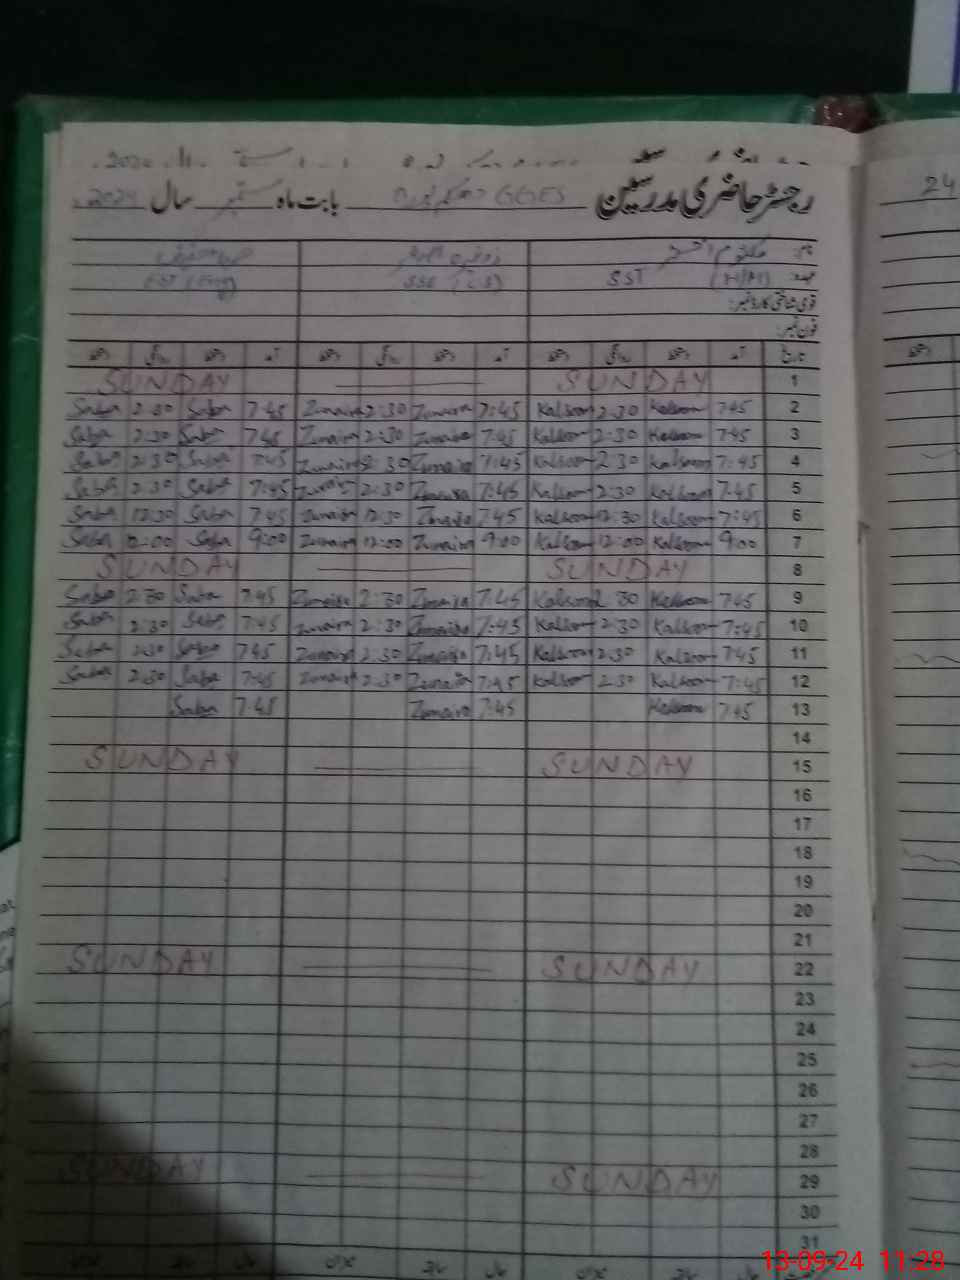 رجسٹر حاضری مدرسین GGES بابت ماہ ستمبر سال 2024
نام:
عہدہ: SST (H/M)
قومی شناختی کارڈ نمبر:
فون نمبر:
تاریخ آمد دستخط روانگی دستخط آمد دستخط روانگی دستخط آمد دستخط روانگی دستخط
SUNDAY SUNDAY 1
Saba 2:30 Saba 7:45 Zunaira 2:30 Zunaira 7:45 Kalsoom 2:30 Kalsoom 7:45 2
Saba 2:30 Saba 7:45 Zunaira 2:30 Zunaira 7:45 Kalsoom 2:30 Kalsoom 7:45 3
Saba 2:30 Saba 7:45 Zunaira 2:30 Zunaira 7:45 Kalsoom 2:30 Kalsoom 7:45 4
Saba 2:30 Saba 7:45 Zunaira 2:30 Zunaira 7:45 Kalsoom 2:30 Kalsoom 7:45 5
Saba 12:30 Saba 7:45 Zunaira 12:30 Zunaira 7:45 Kalsoom 12:30 Kalsoom 7:45 6
Saba 12:00 Saba 9:00 Zunaira 12:00 Zunaira 9:00 Kalsoom 12:00 Kalsoom 9:00 7
SUNDAY SUNDAY 8
Saba 2:30 Saba 7:45 Zunaira 2:30 Zunaira 7:45 Kalsoom 2:30 Kalsoom 7:45 9
Saba 2:30 Saba 7:45 Zunaira 2:30 Zunaira 7:45 Kalsoom 2:30 Kalsoom 7:45 10
Saba 2:30 Saba 7:45 Zunaira 2:30 Zunaira 7:45 Kalsoom 2:30 Kalsoom 7:45 11
Saba 2:30 Saba 7:45 Zunaira 2:30 Zunaira 7:45 Kalsoom 2:30 Kalsoom 7:45 12
Saba 7:45 Zunaira 7:45 Kalsoom 7:45 13
14
SUNDAY SUNDAY 15
16
17
18
19
20
21
SUNDAY SUNDAY 22
23
24
25
26
27
28
SUNDAY SUNDAY 29
30
31
24
13-09-24 11:28